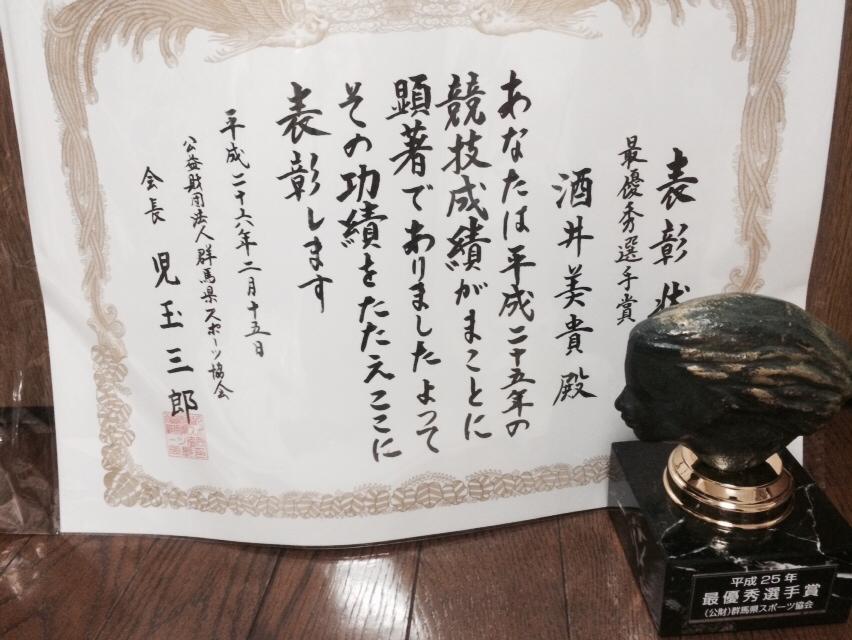 表彰状
最優秀選手賞
酒井美貴殿
あなたは平成二十五年の
競技成績がまことに
顕著でありましたよって
その功績をたたえここに
表彰します
平成二十六年二月十五日
公益財団法人群馬県スポーツ協会
会長 児玉三郎
平成25年
最優秀選手賞
(公財)群馬県スポーツ協会